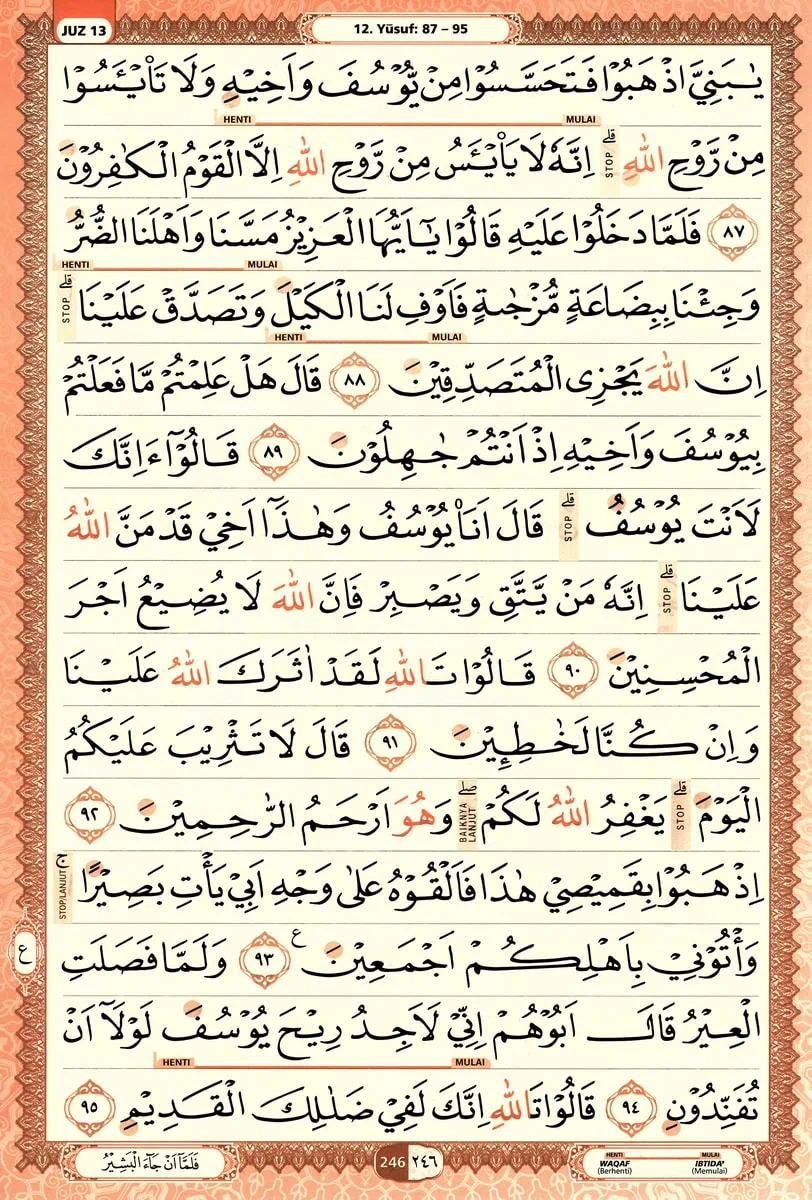 JUZ 13
12. Yūsuf: 87 – 95
يٰبَنِيَّ اذْهَبُوْا فَتَحَسَّسُوْا مِنْ يُّوْسُفَ وَاَخِيْهِ وَلَا تَا۟يْـَٔسُوْا
HENTI MULAI
مِنْ رَّوْحِ اللّٰهِ ۗ STOP اِنَّهٗ لَا يَا۟يْـَٔسُ مِنْ رَّوْحِ اللّٰهِ اِلَّا الْقَوْمُ الْكٰفِرُوْنَ
٨٧ فَلَمَّا دَخَلُوْا عَلَيْهِ قَالُوْا يٰٓاَيُّهَا الْعَزِيْزُ مَسَّنَا وَاَهْلَنَا الضُّرُّ
HENTI MULAI
وَجِئْنَا بِبِضَاعَةٍ مُّزْجٰىةٍ فَاَوْفِ لَنَا الْكَيْلَ وَتَصَدَّقْ عَلَيْنَا ۗ STOP
HENTI MULAI
اِنَّ اللّٰهَ يَجْزِى الْمُتَصَدِّقِيْنَ ٨٨ قَالَ هَلْ عَلِمْتُمْ مَّا فَعَلْتُمْ
بِيُوْسُفَ وَاَخِيْهِ اِذْ اَنْتُمْ جٰهِلُوْنَ ٨٩ قَالُوْٓا ءَاِنَّكَ
لَاَنْتَ يُوْسُفُ ۗ STOP قَالَ اَنَا۠ يُوْسُفُ وَهٰذَآ اَخِيْ قَدْ مَنَّ اللّٰهُ
عَلَيْنَا ۗ STOP اِنَّهٗ مَنْ يَّتَّقِ وَيَصْبِرْ فَاِنَّ اللّٰهَ لَا يُضِيْعُ اَجْرَ
الْمُحْسِنِيْنَ ٩٠ قَالُوْا تَاللّٰهِ لَقَدْ اٰثَرَكَ اللّٰهُ عَلَيْنَا
وَاِنْ كُنَّا لَخٰطِـِٕيْنَ ٩١ قَالَ لَا تَثْرِيْبَ عَلَيْكُمُ
الْيَوْمَ ۗ STOP يَغْفِرُ اللّٰهُ لَكُمْ ۖ BAIKNYA LANJUT وَهُوَ اَرْحَمُ الرّٰحِمِيْنَ ٩٢
اِذْهَبُوْا بِقَمِيْصِيْ هٰذَا فَاَلْقُوْهُ عَلٰى وَجْهِ اَبِيْ يَأْتِ بَصِيْرًا ۚ STOP/LANJUT
وَأْتُوْنِيْ بِاَهْلِكُمْ اَجْمَعِيْنَ ࣖ ٩٣ وَلَمَّا فَصَلَتِ
ع
الْعِيْرُ قَالَ اَبُوْهُمْ اِنِّيْ لَاَجِدُ رِيْحَ يُوْسُفَ لَوْلَآ اَنْ
HENTI MULAI
تُفَنِّدُوْنِ ٩٤ قَالُوْا تَاللّٰهِ اِنَّكَ لَفِيْ ضَلٰلِكَ الْقَدِيْمِ ٩٥
فَلَمَّآ اَنْ جَاۤءَ الْبَشِيْرُ
246 ٢٤٦
HENTI MULAI
WAQAF IBTIDA'
(Berhenti) (Memulai)